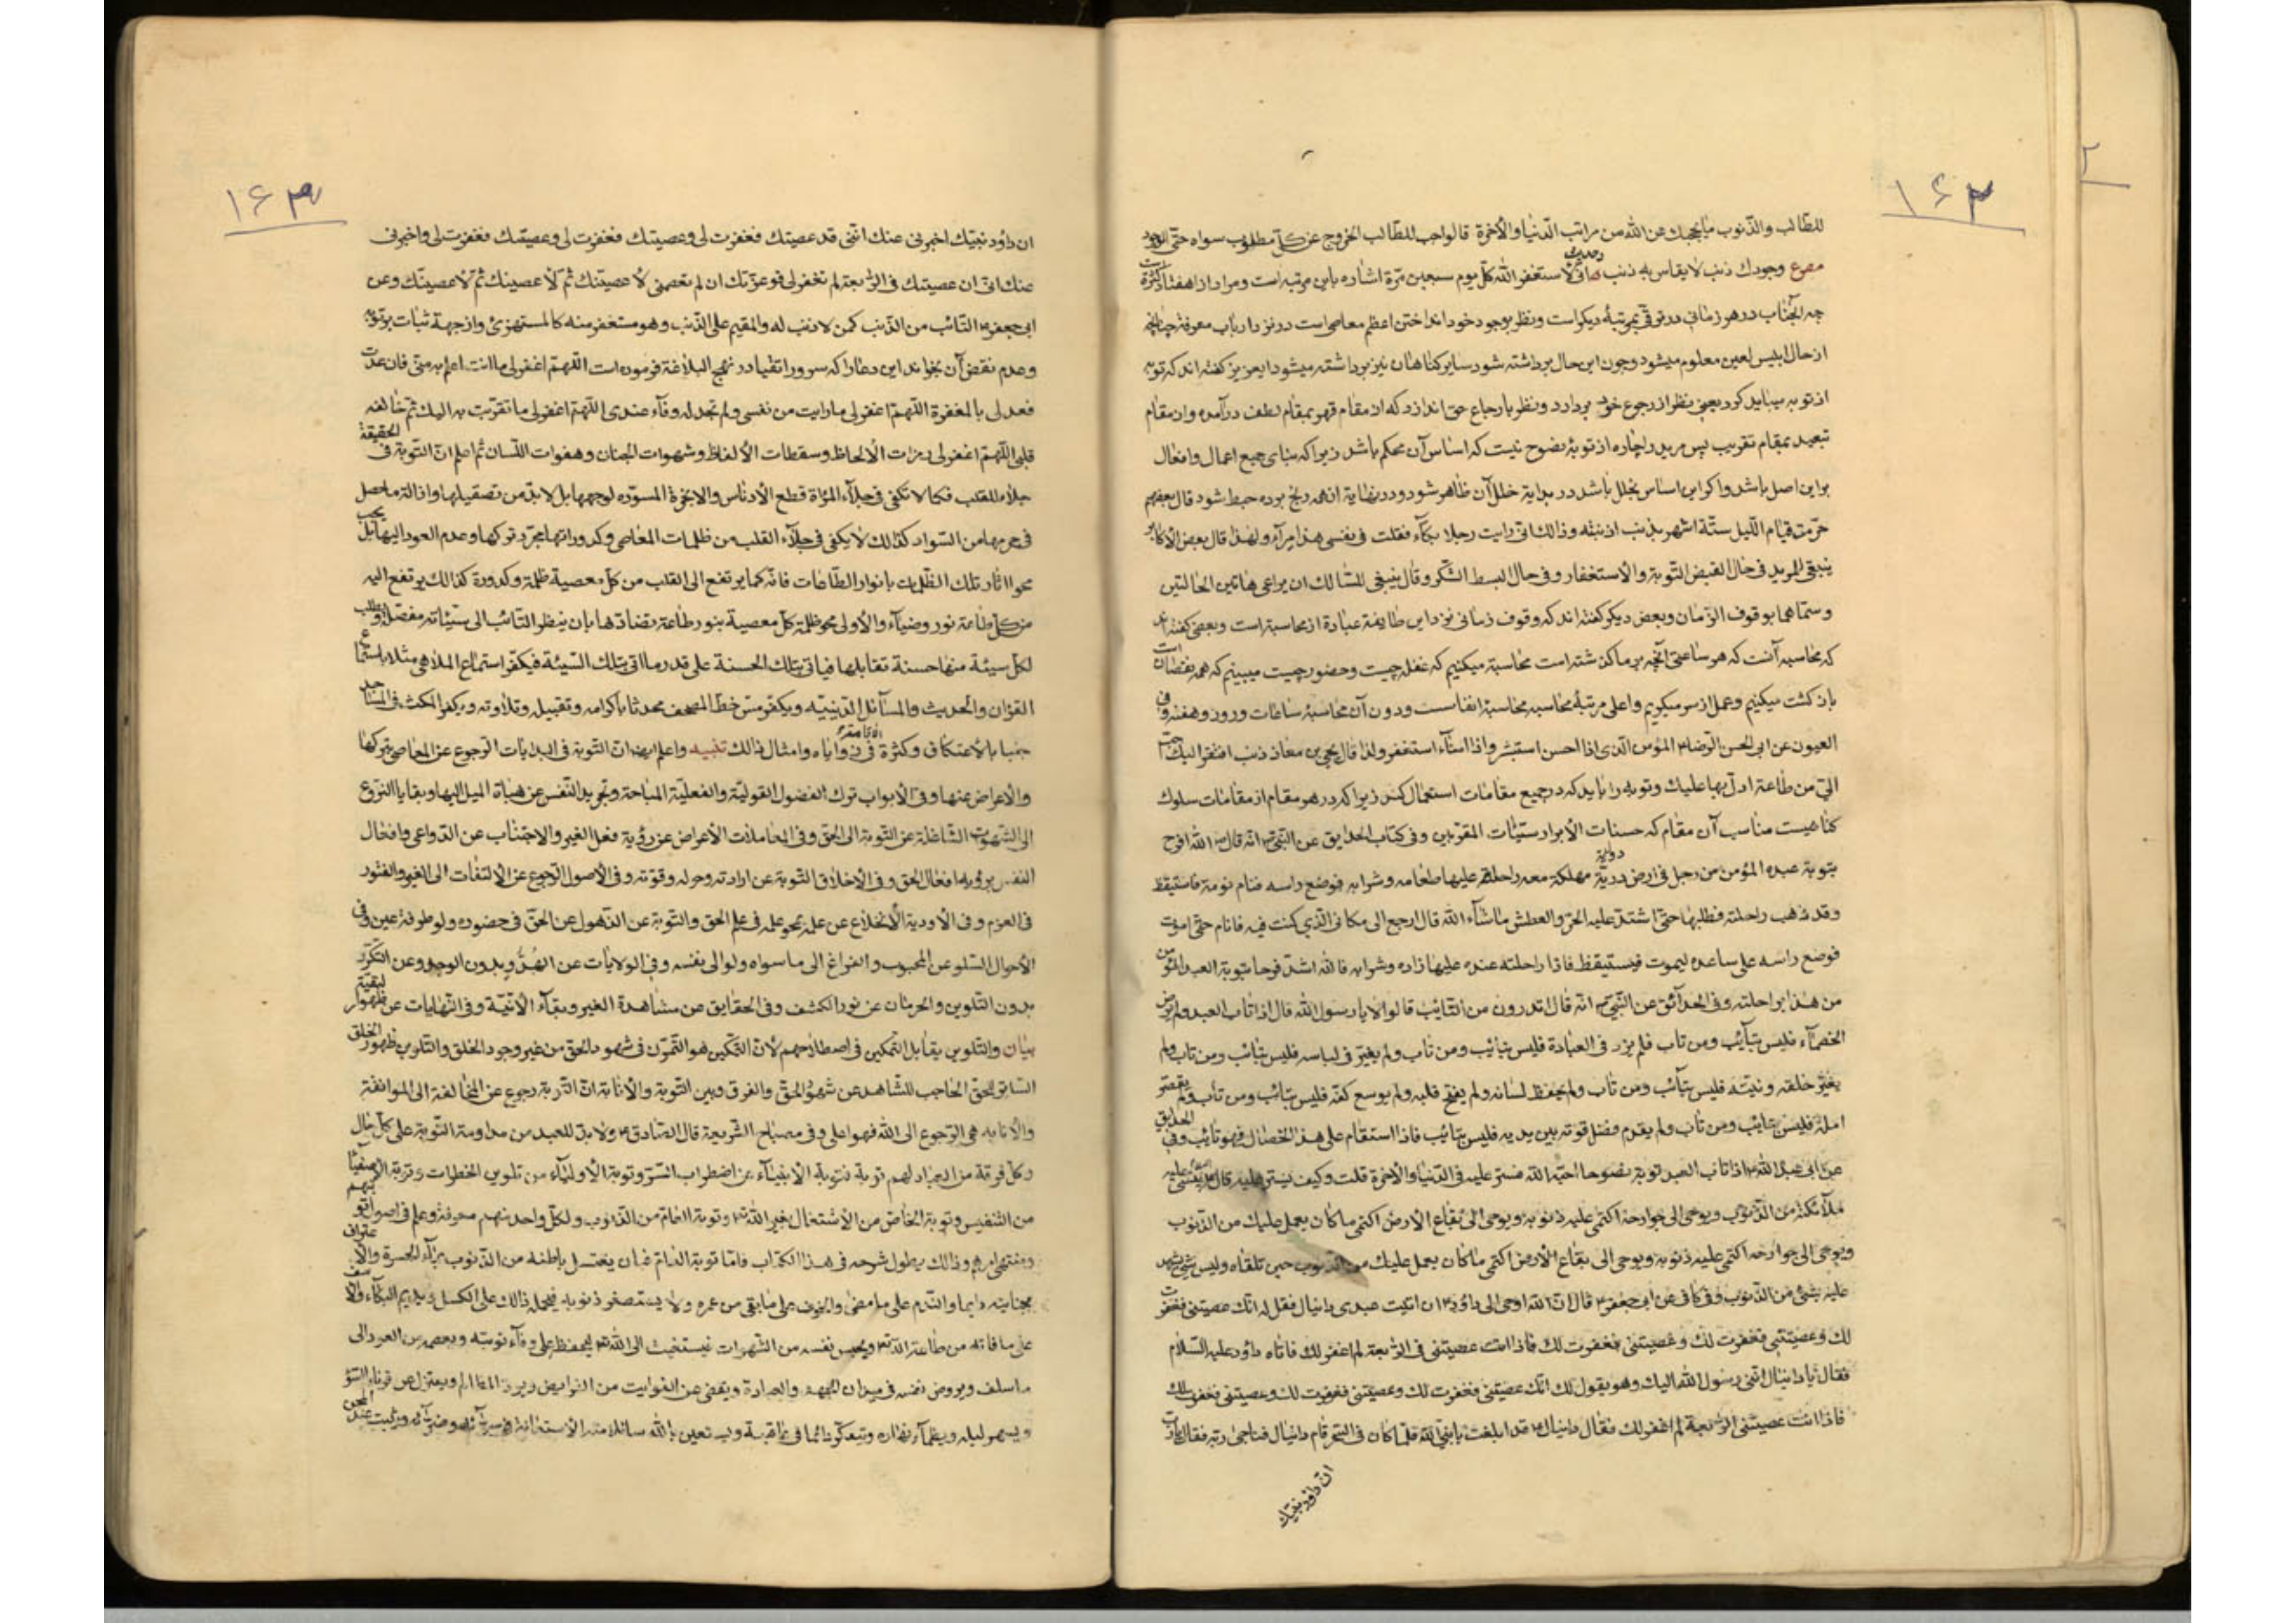 ۱۶۲
۲
للطالب والذنوب ما يحجبك عن الله من مراتب الدنيا والآخرة قالواجب للطالب الخروج عن كل مطلوب سواه حتى الوجود
مصرع وجودك ذنب لا يقاس به ذنب وحديث انى لاستغفر الله كل يوم سبعين مرة اشاره باين مرتبه است ومراد از هفتاد كثرة است
چه آنجناب در هر زمانى در ترقى بمرتبهٔ ديكر است ونظر بوجود خود انداختن اعظم معاصى است در نزد ارباب معرفة چنانچه
از حال ابليس لعين معلوم ميشود وچون اين حال برداشته شود ساير كناهان نيز برداشته ميشود ايعزيز كفته اند كه توبه
از توبه ميبايد كرد يعنى نظر از رجوع خود بردارد ونظر بارجاع حق اندازد كه از مقام قهر بمقام لطف درآمده واز مقام
تبعيد بمقام تقريب پس مريد را چاره از توبهٔ نصوح نيست كه اساس آن محكم باشد زيرا كه بناى جميع اعمال وافعال
براين اصل باشد واكر اين اساس بخلل باشد در بداية خلل آن ظاهر شود ودر نهاية انهمه رنج برده حبط شود قال بعضهم
حرمت قيام الليل ستة اشهر بذنب اذنبته وذالك انى رايت رجلا بكاء فقلت فى نفسى هذا مراء ولهذا قال بعض الأكابر
ينبغى للمريد فى حال القبض التوبة والاستغفار وفى حال البسط الشكر وقال ينبغى للسالك ان يراعى هاتين الحالتين
وسماهما بوقوف الزمان وبعض ديكر كفته اند كه وقوف زمانى نزد اين طايفة عبارة از محاسبة است وبعضى كفته اند
كه محاسبه آنست كه هر ساعتى آنچه بر ما كذشته است محاسبة ميكنيم كه غفلة چيست وحضور چيست ميبينم كه همه نقصان است
باز كشت ميكنيم وعمل از سر ميكيريم واعلى مرتبهٔ محاسبه محاسبهٔ انفاسست ودون آن محاسبهٔ ساعات وروز وهفته وفى
العيون عن ابى الحسن الرضا ع المؤمن الذى اذا احسن استبشر واذا اساء استغفر ولذا قال يحيى بن معاذ ذنب افتقر اليك احب
الىّ من طاعة ادل بها عليك وتوبه را بايد كه در جميع مقامات استعمال كند زيرا كه در هر مقام از مقامات سلوك
كناهيست مناسب آن مقام كه حسنات الأبرار سيئات المقربين وفى كتاب الحدايق عن النبى ص انه قال ص الله افرح
بتوبة عبده المؤمن من رجل فى ارض دوية مهلكة معه راحلته عليها طعامه وشرابه فوضع راسه فنام نومة فاستيقظ
وقد ذهب راحلته فطلبها حتى اشتد عليه الحر والعطش ما شاء الله قال ارجع الى مكانى الذى كنت فيه فانام حتى اموت
فوضع راسه على ساعده ليموت فيستيقظ فاذا راحلته عنده عليها زاده وشرابه فالله اشد فرحا بتوبة العبد المؤمن
من هذا براحلته وفى الحدائق عن النبى ص انه قال اتدرون من التايب قالوا لا يا رسول الله قال اذا تاب العبد ولم يرض
الخصماء فليس بتايب ومن تاب فلم يزد فى العبادة فليس بتايب ومن تاب ولم يغير فى لباسه فليس بتائب ومن تاب ولم
يغير خلقه ونيته فليس بتائب ومن تاب ولم يحفظ لسانه ولم يفتح قلبه ولم يوسع كفه فليس بتائب ومن تاب ولم يقصر
امله فليس بتايب ومن تاب ولم يقدم فضل قوته بين يديه فليس بتائب فاذا استقام على هذا الخصال فهو تائب وفى الحدايق
عن ابى عبد الله ع اذا تاب العبد توبة نصوحا احبه الله فستر عليه فى الدنيا والآخرة قلت وكيف يستر عليه قال ع ينسى
ملائكته من الذنوب ويوحى الى جوارحه اكتمى عليه ذنوبه ويوحى الى بقاع الأرض اكتمى ما كان يعمل عليك من الذنوب
ويوحى الى جوارحه اكتمى عليه ذنوبه ويوحى الى بقاع الأرض اكتمى ما كان يعمل عليك من الذنوب حين تلقاه وليس شئ يشهد
عليه بشئ من الذنوب وفى كافى عن ابى جعفر ع قال ان الله اوحى الى داؤد ع ان ائت عبدى دانيال فقل له انك عصيتنى فغفرت
لك وعصيتنى فغفرت لك وعصيتنى فغفرت لك فاذا انت عصيتنى فى الرابعة لم اغفر لك فاتاه داؤد عليه السلام
فقال يا دانيال اننى رسول الله اليك وهو يقول لك انك عصيتنى فغفرت لك وعصيتنى فغفرت لك وعصيتنى فغفرت لك
فاذا انت عصيتنى الرابعة لم اغفر لك فقال دانيال ع قد ابلغت يا نبى الله فلما كان فى السحر قام دانيال فناجى ربه فقال يا رب
ان داؤد نبيك
۱۶۳
ان داؤد نبيك اخبرنى عنك اننى قد عصيتك فغفرت لى وعصيتك فغفرت لى وعصيتك فغفرت لى واخبرنى
عنك انى ان عصيتك فى الرابعة لم تغفر لى فوعزتك ان لم تعصمنى لأعصيتك ثم لأعصينك ثم لأعصينك وعن
ابى جعفر ع التائب من الذنب كمن لا ذنب له والمقيم على الذنب وهو مستغفر منه كالمستهزئ واز جهة ثبات بر توبه
وعدم نقض آن بخواند اين دعا را كه سرور اتقيا در نهج البلاغة فرموده است اللهم اغفر لى ما انت اعلم به منى فان عدت
فعد لى بالمغفرة اللهم اغفر لى ما رايت من نفسى ولم تجد له وفاء عندى اللهم اغفر لى ما تقربت به اليك ثم خالفه
قلبى اللهم اغفر لى رمزات الألحاظ وسقطات الألفاظ وشهوات الجنان وهفوات اللسان ثم اعلم ان التوبة فى الحقيقة
جلاء للقلب فكما لا تكفى فى جلاء المرآة قطع الأدناس والابخرة المسودة لوجهها بل لا بد من تصقيلها وازالة ما حصل
فى جرمها من السواد كذالك لا يكفى فى جلاء القلب من ظلمات المعاصى وكدوراتها مجرد تركها وعدم العود اليها بل يجب
محو اثار تلك الظلمات بانوار الطاعات فانه كما يرتفع الى القلب من كل معصية ظلمة وكدورة كذالك يرتفع اليه
من كل طاعة نور وضياء والأولى محو ظلمة كل معصية بنور طاعة تضادها بان ينظر التائب الى سيئاته مفصلة ويطلب
لكل سيئة منها حسنة تقابلها فياتى بتلك الحسنة على قدر ما اتى بتلك السيئة فيكفر استماع الملاهى مثلا باستماع
القرآن والحديث والمسائل الدينية ويكفر مس خط المصحف محدثا باكرامه وتقبيله وتلاوته ويكفر المكث فى المساجد
جنبا بالأعتكاف وكثرة الاقامة فى زواياه وامثال ذالك تنبيه واعلم ايضا ان التوبة فى البدايات الرجوع عن المعاصى بتركها
والأعراض عنها وفى الأبواب ترك الفضول القولية والفعلية المباحة وتجريد النفس عن هيئات الميل اليها وبقايا النزوع
الى الشهوات الشاغلة عن التوبة الى الحق وفى المعاملات الأعراض عن رؤية فعل الغير والاجتناب عن الدواعى وافعال
النفس برؤية افعال الحق وفى الأخلاق التوبة عن ارادته وحوله وقوته وفى الأصول الرجوع عن الألتفات الى الغير والفتور
فى العزم وفى الأودية الأنخلاع عن علمه بمحو علمه فى علم الحق والتوبة عن الذهول عن الحق فى حضوره ولو طرفة عين وفى
الأحوال السلو عن المحبوب والفراغ الى ما سواه ولو الى نفسه وفى الولايات عن بدون الوجد وعن التكدر
بدون التلوين والحرمان عن نور الكشف وفى الحقايق من مشاهدة الغير وبقاء الأنية وفى النهايات عن ظهور لبقية
والتلوين يقابل التمكين فى اصطلاحهم لأن التمكين هو التمرن فى شهود الحق من غير وجود الخلق والتلوين ظهور الخلق
الحاجب للشاهد عن شهود الحق والفرق وبين التوبة والأنابة ان التوبة رجوع عن المخالفة الى الموافقة
والأنابه هى الرجوع الى الله فهو اعلى وفى مصباح الشريعة قال الصادق ع ولا بد للعبد من مداومة التوبة على كل حال
وكل فرقة من العباد لهم توبة فتوبة الأنبياء عن اضطراب السر وتوبة الأولياء من تلوين الخطرات وتوبة الأصفياء
من التنفيس وتوبة الخاص من الأشتغال بغير الله تع وتوبة العام من الذنوب ولكل واحد منهم معرفة وعلم فى اصول توبتهم
ومنتهى امرهم وذالك يطول شرحه فى هذا الكتاب فاما توبة العام فان يغتسل باطنه من الذنوب بماء الحسرة والأعتراف
بجنايته دايما والندم على ما مضى والخوف على ما بقى من عمره ولا يستصغر ذنوبه فيحمله ذالك على الكسل ويديم البكاء والأسف
على ما فاته من طاعة الله تع ويحبس نفسه من الشهوات فيستغيث الى الله تع ليحفظه على وفاء توبته ويعصمه من العود الى
ما سلف ويروض نفسه فى ميدان الجهد والعبادة ويقضى عن الفوايت من الفرايض ويرد المظالم ويعتزل عن قرناء السوء
ويسهر ليله ويظمأ نهاره ويتفكر دائما فى عاقبته ويستعين بالله سائلا منه الأستعانة فى سرائه وضرائه ويثبت عند المحن